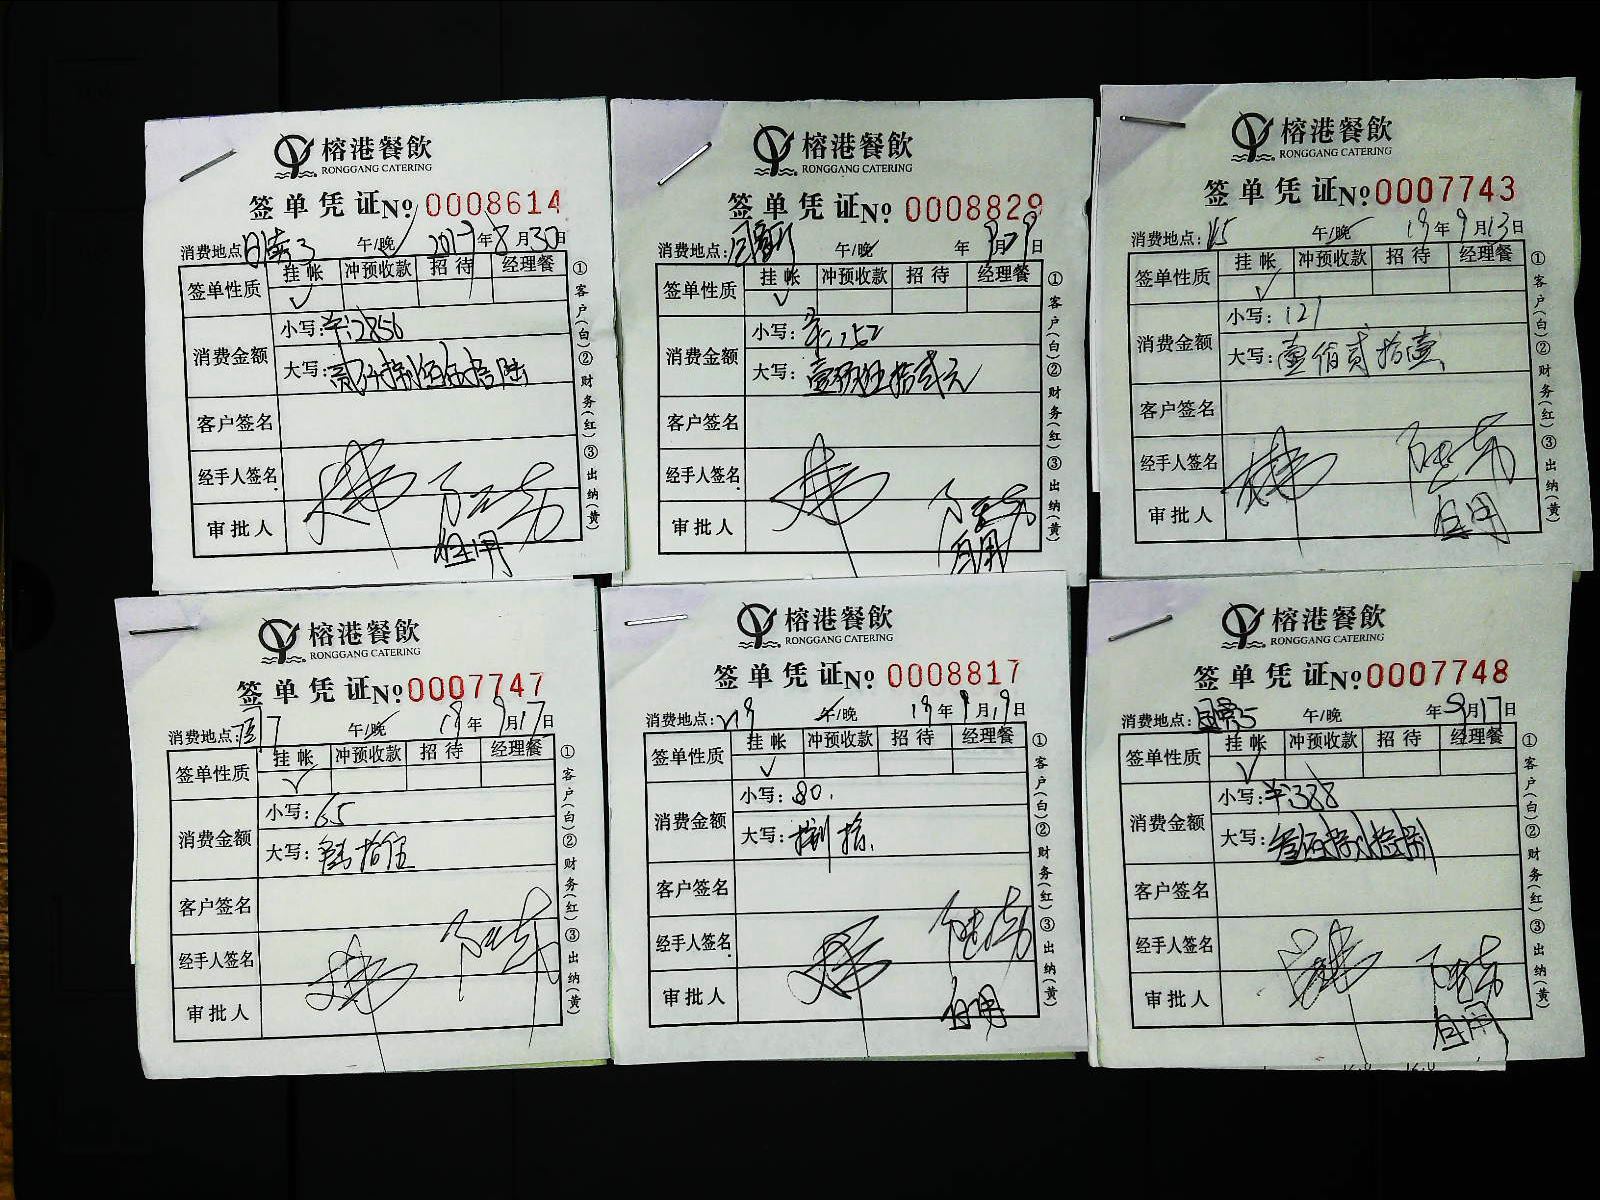 榕港餐飲
RONGGANG CATERING
签单凭证No 0008614
消费地点: 午/晚 2019年8月30日
挂帐 冲预收款 招待 经理餐
签单性质 ✓
消费金额 小写:¥:2856
大写:贰仟捌佰伍拾陆
客户签名
经手人签名
审批人
自用
①客户(白)②财务(红)③出纳(黄)
榕港餐飲
RONGGANG CATERING
签单凭证No 0008829
消费地点: 午/晚 年9月29日
挂帐 冲预收款 招待 经理餐
签单性质 ✓
消费金额 小写:¥:152
大写:壹佰伍拾贰元
客户签名
经手人签名
审批人
自用
①客户(白)②财务(红)③出纳(黄)
榕港餐飲
RONGGANG CATERING
签单凭证No 0007743
消费地点: 午/晚 19年9月13日
挂帐 冲预收款 招待 经理餐
签单性质 ✓
消费金额 小写:121
大写:壹佰贰拾壹
客户签名
经手人签名
审批人
自用
①客户(白)②财务(红)③出纳(黄)
榕港餐飲
RONGGANG CATERING
签单凭证No 0007747
消费地点: 午/晚 19年9月17日
挂帐 冲预收款 招待 经理餐
签单性质 ✓
消费金额 小写:65
大写:陆拾伍
客户签名
经手人签名
审批人
①客户(白)②财务(红)③出纳(黄)
榕港餐飲
RONGGANG CATERING
签单凭证No 0008817
消费地点: 午/晚 19年9月19日
挂帐 冲预收款 招待 经理餐
签单性质 ✓
消费金额 小写:80.
大写:捌拾.
客户签名
经手人签名
审批人
自用
①客户(白)②财务(红)③出纳(黄)
榕港餐飲
RONGGANG CATERING
签单凭证No 0007748
消费地点: 午/晚 年9月17日
挂帐 冲预收款 招待 经理餐
签单性质 ✓
消费金额 小写:¥:388
大写:叁佰捌拾捌
客户签名
经手人签名
审批人
自用
①客户(白)②财务(红)③出纳(黄)